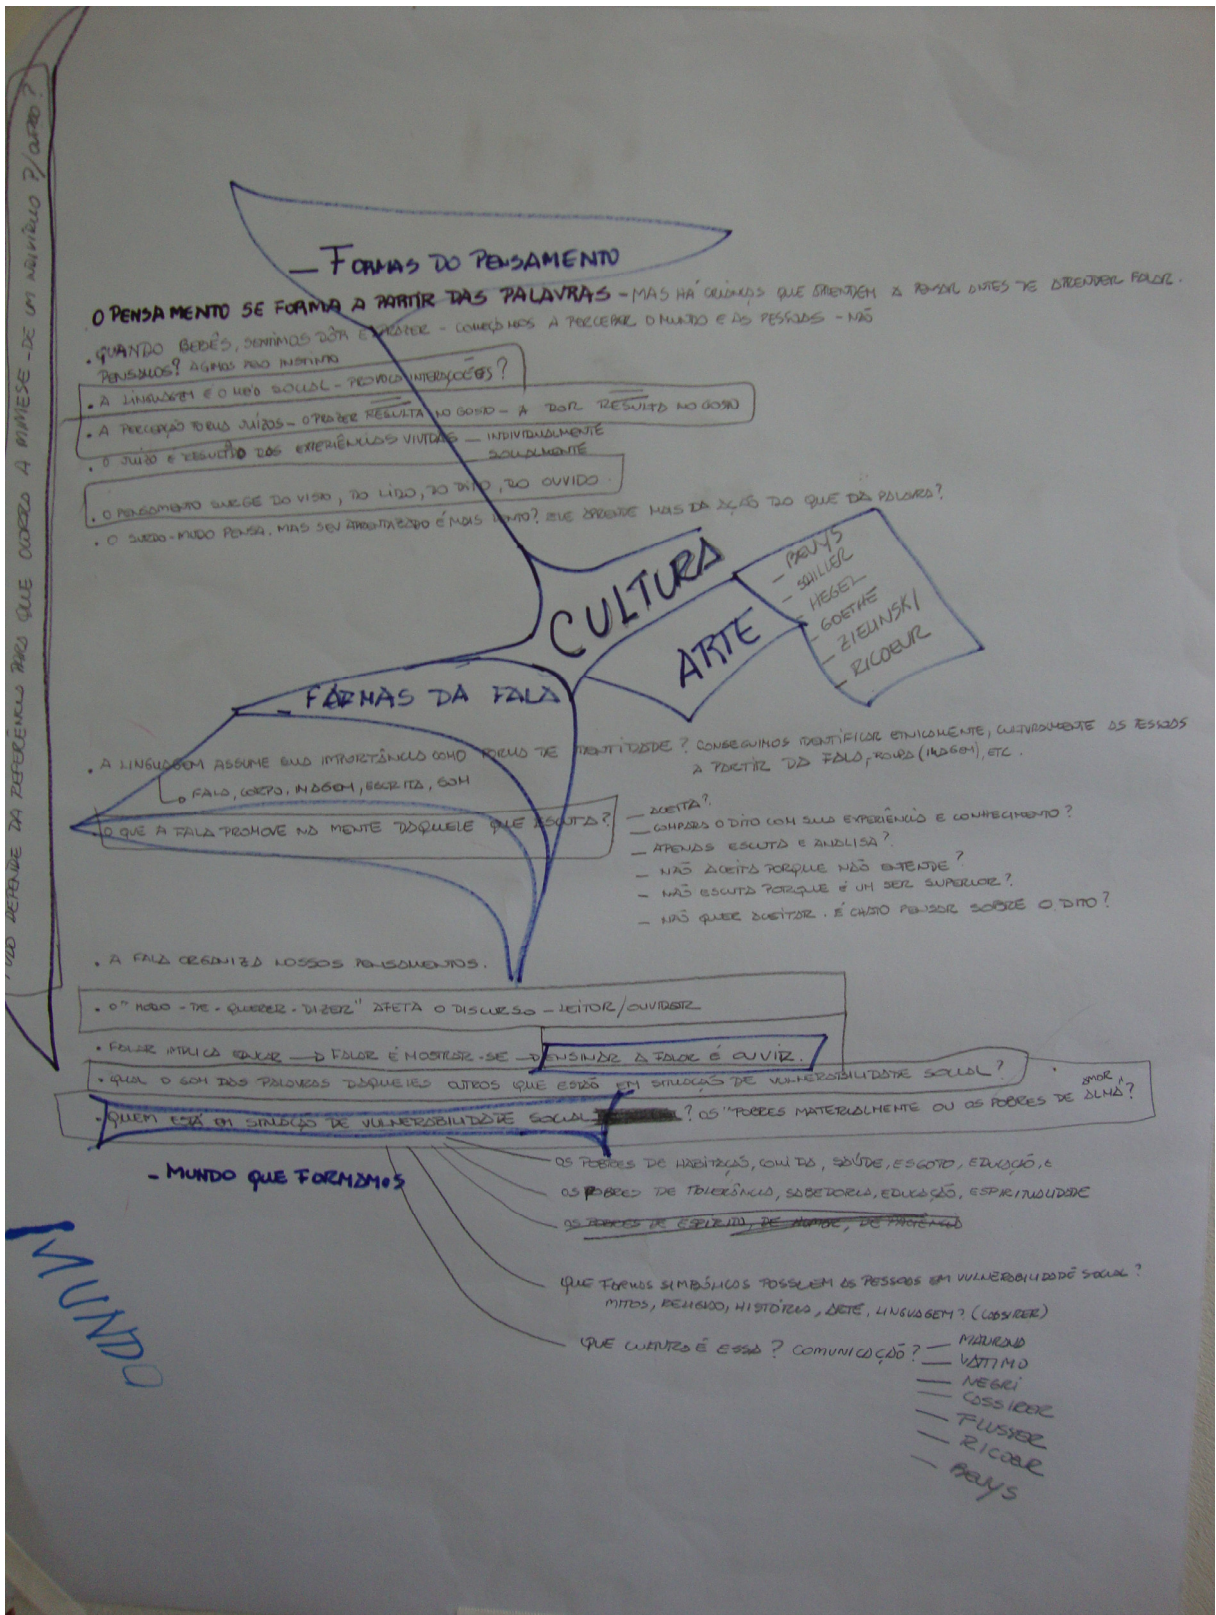 TUDO DEPENDE DA REFERÊNCIA PARA QUE OCORRA A MIMESE - DE UM INDIVÍDUO P/ OUTRO?
— FORMAS DO PENSAMENTO
O PENSAMENTO SE FORMA A PARTIR DAS PALAVRAS - MAS HÁ CRIANÇAS QUE APRENDEM A PENSAR ANTES DE APRENDER FALAR.
. QUANDO BEBÊS, SENTIMOS DÔR E PRAZER - COMEÇAMOS A PERCEBER O MUNDO E AS PESSOAS - NÃO
PENSAMOS? AGIMOS PELO INSTINTO
. A LINGUAGEM E O MEIO SOCIAL - PROVOCA INTERAÇÕES?
. A PERCEPÇÃO FORMA JUÍZOS - O PRAZER RESULTA NO GOSTO - A DOR RESULTA NO GOSTO
. O JUÍZO É RESULTADO DAS EXPERIÊNCIAS VIVIDAS — INDIVIDUALMENTE
SOCIALMENTE
. O PENSAMENTO SURGE DO VISTO, DO LIDO, DO DITO, DO OUVIDO.
. O SURDO-MUDO PENSA, MAS SEU APRENTIZADO É MAIS LENTO? ELE APRENDE MAIS DA AÇÃO DO QUE DA PALAVRA?
CULTURA
ARTE
— BEUYS
— SCHILLER
— HEGEL
— GOETHE
— ZIELINSKI
— RICOEUR
— FORMAS DA FALA
. A LINGUAGEM ASSUME SUA IMPORTÂNCIA COMO FORMA DE IDENTIDADE? CONSEGUIMOS IDENTIFICAR ETNICAMENTE, CULTURALMENTE AS PESSOAS
A PARTIR DA FALA, ROUPA (IMAGEM), ETC.
FALA, CORPO, IMAGEM, ESCRITA, SOM
. O QUE A FALA PROMOVE NA MENTE DAQUELE QUE ESCUTA?
— ACEITA?
— COMPARA O DITO COM SUA EXPERIÊNCIA E CONHECIMENTO?
— APENAS ESCUTA E ANALISA?
— NÃO ACEITA PORQUE NÃO ENTENDE?
— NÃO ESCUTA PORQUE É UM SER SUPERIOR?
— NÃO QUER ACEITAR. É CHATO PENSAR SOBRE O DITO?
. A FALA ORGANIZA NOSSOS PENSAMENTOS.
. O "MODO-DE-QUERER-DIZER" AFETA O DISCURSO - LEITOR/OUVIDOR
. FALAR IMPLICA EDUCAR — FALAR É MOSTRAR-SE — ENSINAR A FALAR É OUVIR.
. QUAL O SOM DAS PALAVRAS DAQUELES OUTROS QUE ESTÃO EM SITUAÇÃO DE VULNERABILIDADE SOCIAL?
. QUEM ESTÁ EM SITUAÇÃO DE VULNERABILIDADE SOCIAL ? OS "POBRES MATERIALMENTE OU OS POBRES DE ALMA"?
AMOR
OS POBRES DE HABITAÇÃO, COMIDA, SAÚDE, ESGOTO, EDUCAÇÃO, E
- MUNDO QUE FORMAMOS
OS POBRES DE TOLERÂNCIA, SABEDORIA, EDUCAÇÃO, ESPIRITUALIDADE
OS POBRES DE ESPÍRITO, DE HUMOR, DE PACIÊNCIA
MUNDO
QUE FORMAS SIMBÓLICAS POSSUEM AS PESSOAS EM VULNERABILIDADE SOCIAL?
MITOS, RELIGIÃO, HISTÓRIA, ARTE, LINGUAGEM? (CASSIRER)
QUE CULTURA É ESSA? COMUNICAÇÃO?
— VATTIMO
— NEGRI
— CASSIRER
— FLUSSER
— RICOEUR
— BEUYS